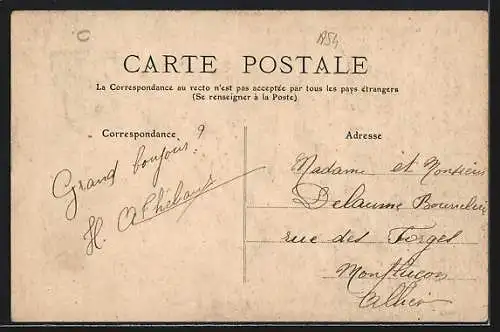 A54
CARTE POSTALE
La Correspondance au recto n'est pas acceptée par tous les pays étrangers
(Se renseigner à la Poste)
Correspondance
Adresse
Grand bonjour ?
H.
Madame et Monsieur
Delaume
rue des Forges
Montluçon
Allier